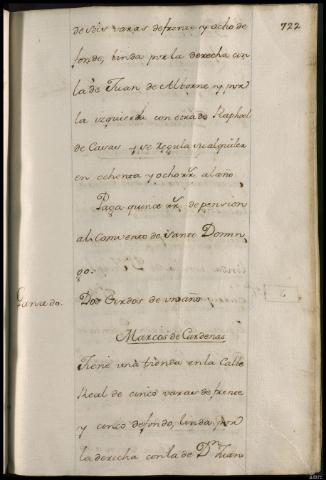 722
de seis varas de frente y ocho de
fondo, linda por la derecha con
la de Juan de Alborne y por
la izquierda con otra de Raphael
de Casas y se regula su alquiler
en ochenta y ocho rr.s al año
Paga quince rr.s de pension
al Combento de Santo Domin
go.
Ganado. Dos Cerdos de un año
Marcos de Cardenas
Tiene una tienda en la Calle
Real de cinco varas de frente
y cinco de fondo, linda por
la derecha con la de D.n Juan